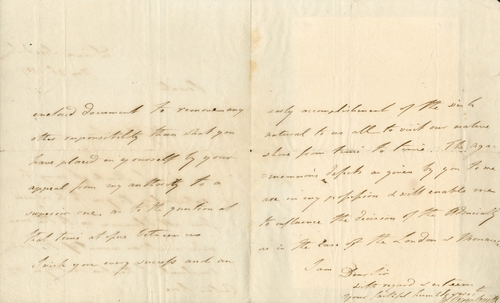 enclosed document to remove any
other responsibility than what you
have placed on yourself by your
appeal from my authority to a
superior one, as to the question at
that time at issue between us
I wish you every success and an
early accomplishment of the wish
natural to us all to visit our native
shore from time to time. The
as given by you to me
are in my possession & will enable me
to influence the decision of the Admiralty
as in the case of the London &
I am Dear Sir
with regard & esteem
your faithful humble servt